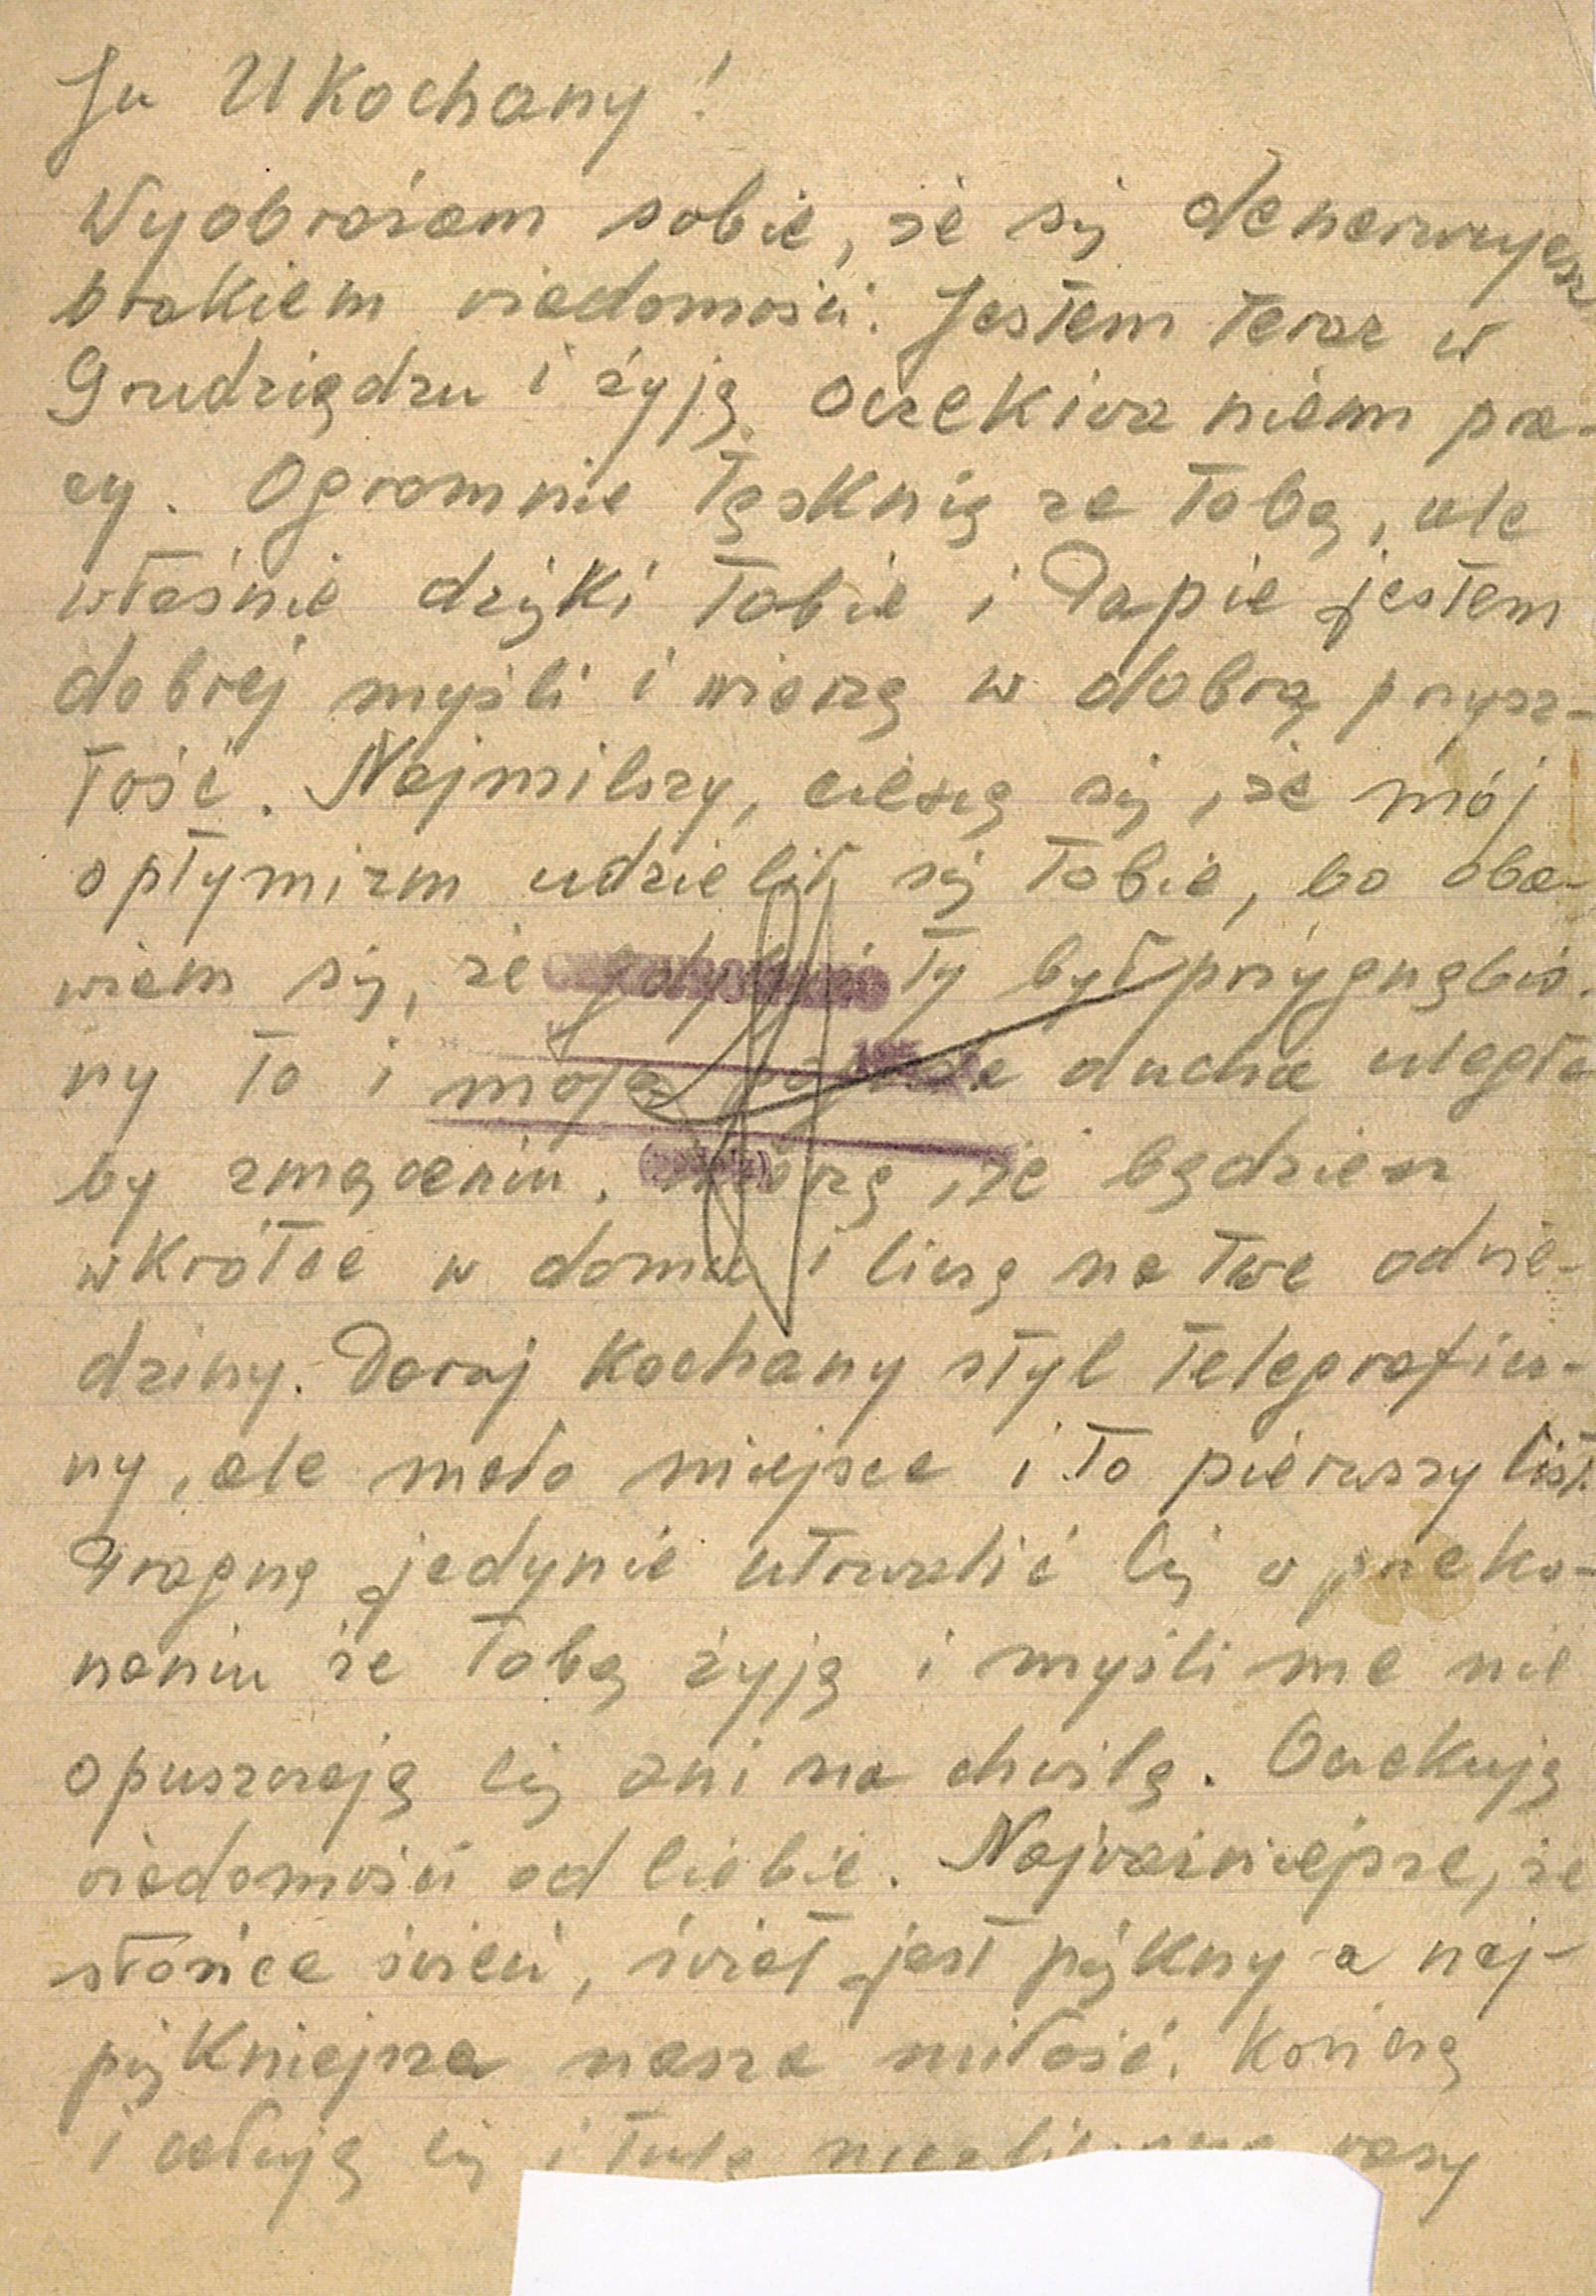 Ju Ukochany!
Wyobrażam sobie, że się denerwujesz
brakiem wiadomości. Jestem teraz w
Grudziądzu i żyję oczekiwaniem pra-
cy. Ogromnie tęsknię za Tobą, ale
właśnie dzięki Tobie i Papie jestem
dobrej myśli i wierzę w dobrą przysz-
łość. Najmilszy, cieszę się, że mój
optymizm udzielił się Tobie, bo oba-
wiam się, że gdybyś Ty był przygnębio-
ny to i moja pogoda ducha uległa
by zmąceniu. Wierzę, że będziesz
wkrótce w domu i liczę na Twe odwie-
dziny. Daruj Kochany styl telegraficz-
ny, ale mało miejsca i to pierwszy list.
Pragnę jedynie utrwalić Cię w przeko-
naniu że Tobą żyję i myśli me nie
opuszczają Cię ani na chwilę. Oczekuję
wiadomości od Ciebie. Najważniejsze, że
słońce świeci, świat jest piękny a naj-
piękniejsza nasza miłość. Kończę
i całuję Cię i tulę razy